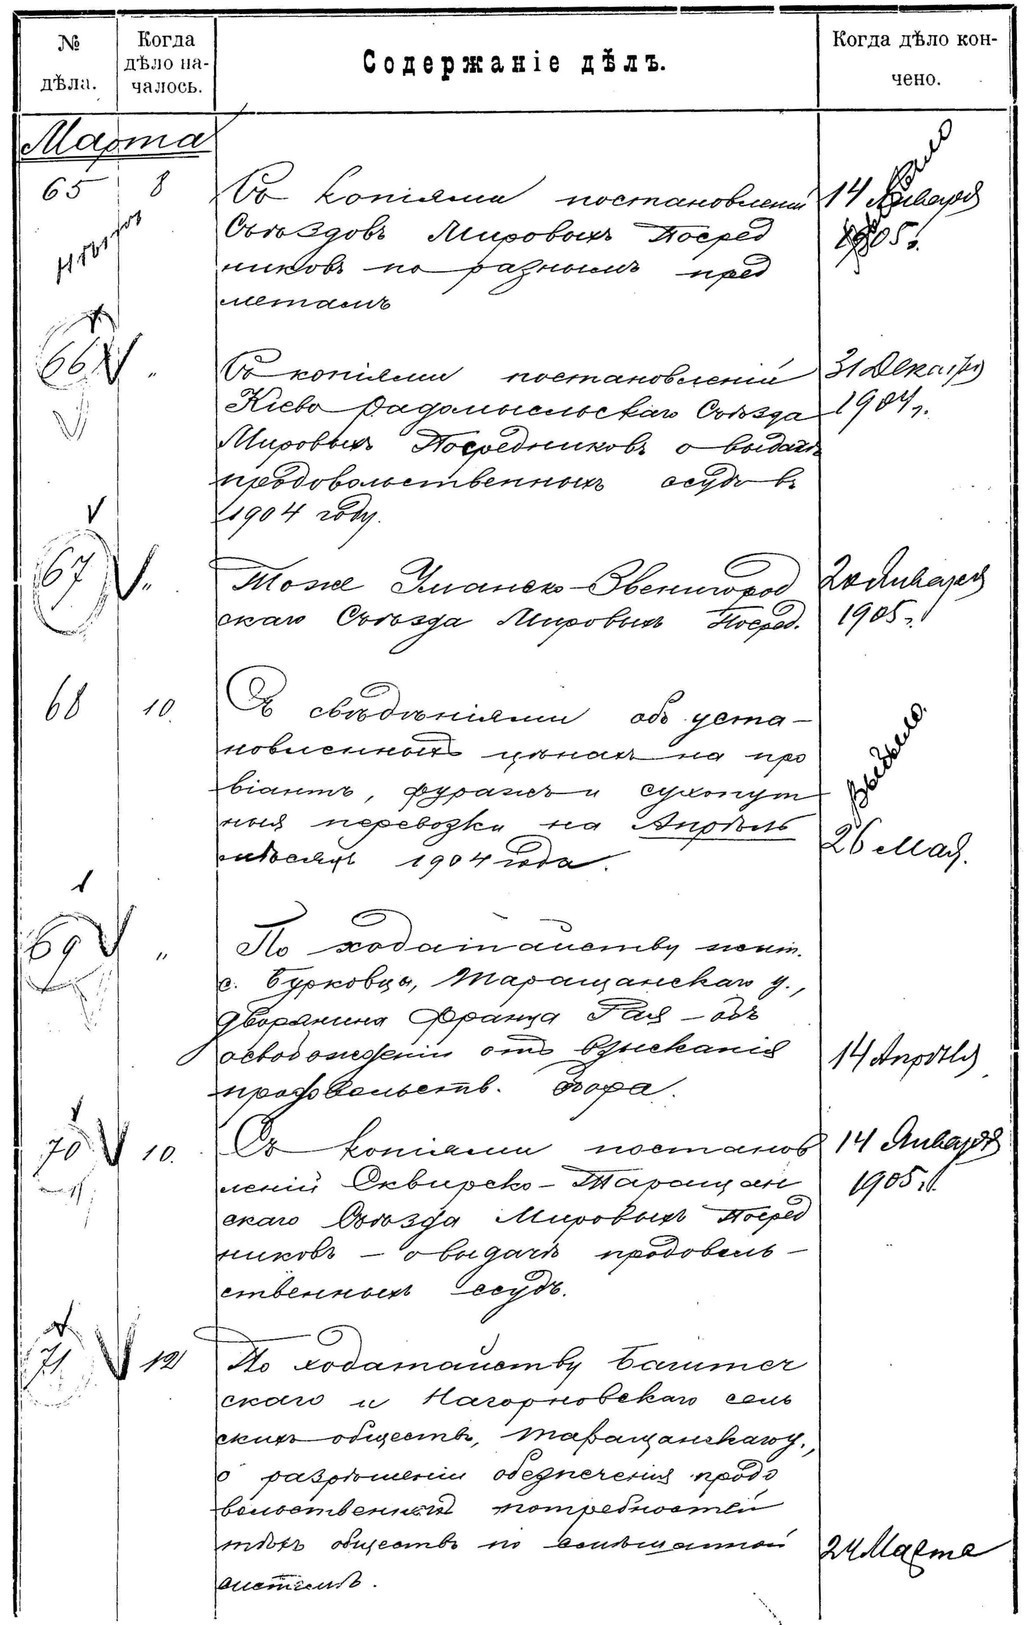 № дѣла.
Когда дѣло началось.
Содержаніе дѣлъ.
Когда дѣло кончено.
Марта
65 8 Съ копіями постановленій 14 Января
Съѣздовъ Мировыхъ Посред 1905 г.
никовъ по разнымъ пред
метамъ
66 " Съ копіями постановленій 31 Декабря
Кіево Радомысльскаго Съѣзда 1904 г.
Мировыхъ Посредниковъ о выдачѣ
продовольственныхъ ссудъ въ
1904 году.
67 " Тоже Уманско-Звенигород Января
скаго Съѣзда Мировыхъ Посред. 1905 г.
68 10. Съ свѣдѣніями объ уста-
новленныхъ цѣнахъ на про
віантъ, фуражъ и сухопут
ныя перевозки на Апрѣль
мѣсяцъ 1904 года. 26 Мая.
69 " По ходатайству
с. Бурковцы, Таращанскаго у.,
дворянина Франца Гая - объ
освобожденіи отъ взысканія 14 Апрѣля
продовольств. сбора.
70 10. Съ копіями постанов 14 Января
леній Сквирско-Таращан 1905 г.
скаго Съѣзда Мировыхъ Посред
никовъ - о выдачѣ продоволь-
ственныхъ ссудъ.
71 12 По ходатайству
скаго и Нагорновскаго сель
скихъ обществъ, Таращанскаго у.,
о разрѣшеніи обезпеченія продо
вольственныхъ потребностей
тѣхъ обществъ по смѣшанной 24 Марта
системѣ.